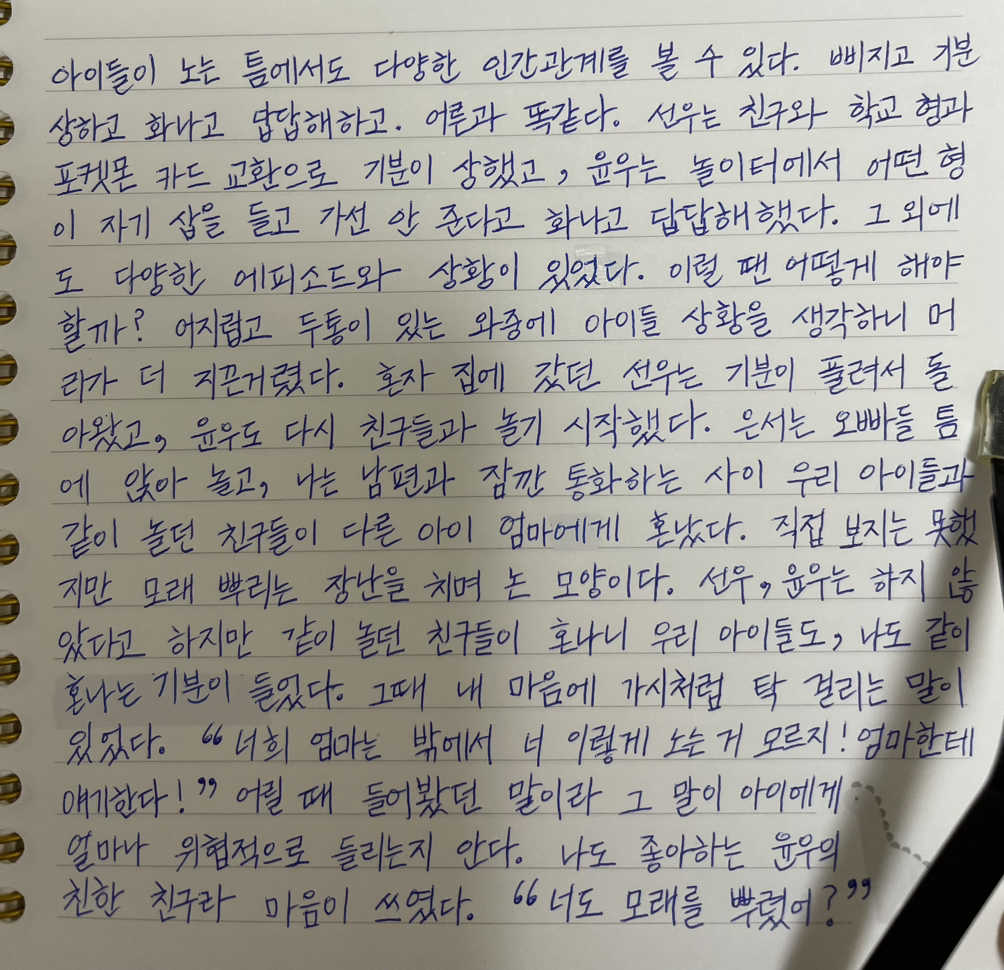 아이들이 노는 틈에서도 다양한 인간관계를 볼 수 있다. 삐지고 기분
상하고 화나고 답답해하고. 어른과 똑같다. 선우는 친구와 학교 형과
포켓몬 카드 교환으로 기분이 상했고, 윤우는 놀이터에서 어떤 형
이 자기 삽을 들고 가선 안 준다고 화나고 답답해했다. 그 외에
도 다양한 에피소드와 상황이 있었다. 이럴 땐 어떻게 해야
할까? 어지럽고 두통이 있는 와중에 아이들 상황을 생각하니 머
리가 더 지끈거렸다. 혼자 집에 갔던 선우는 기분이 풀려서 돌
아왔고, 윤우도 다시 친구들과 놀기 시작했다. 은서는 오빠들 틈
에 앉아 놀고, 나는 남편과 잠깐 통화하는 사이 우리 아이들과
같이 놀던 친구들이 다른 아이 엄마에게 혼났다. 직접 보지는 못했
지만 모래 뿌리는 장난을 치며 논 모양이다. 선우, 윤우는 하지 않
았다고 하지만 같이 놀던 친구들이 혼나니 우리 아이들도, 나도 같이
혼나는 기분이 들었다. 그때 내 마음에 가시처럼 탁 걸리는 말이
있었다. “너희 엄마는 밖에서 너 이렇게 노는 거 모르지! 엄마한테
얘기한다!” 어릴 때 들어봤던 말이라 그 말이 아이에게
얼마나 위협적으로 들리는지 안다. 나도 좋아하는 윤우의
친한 친구라 마음이 쓰였다. “너도 모래를 뿌렸어?”